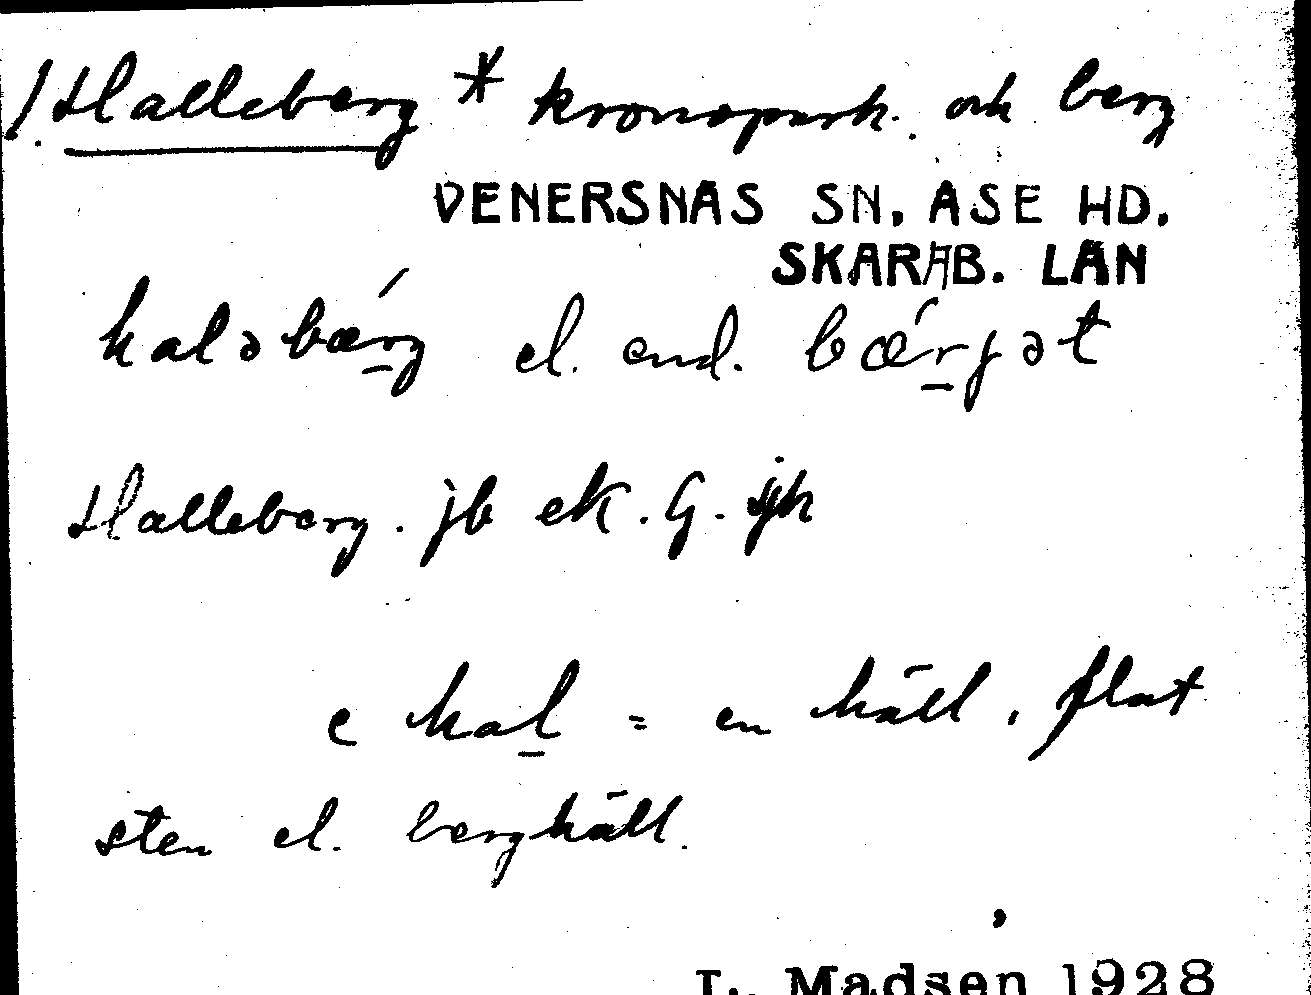 ! Halleberg * kronopark. och berg
VENERSNÄS SN, ÅSE HD.
SKARAB. LÄN
haləbærg el. end. bærjət
Halleberg. jb ek. G. jk
e hal = en häll, flat
sten el. berghäll.
L. Madsen 1928